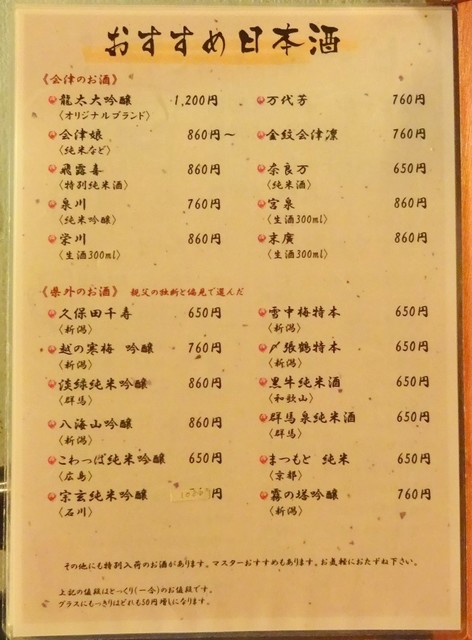 おすすめ日本酒
《会津のお酒》
龍太大吟醸 1,200円
〈オリジナルブランド〉
会津娘 860円～
〈純米など〉
飛露喜 860円
〈特別純米酒〉
泉川 760円
〈純米吟醸〉
栄川 860円
〈生酒300ml〉
万代芳 760円
金紋会津凛 760円
奈良万 650円
〈純米酒〉
宮泉 860円
〈生酒300ml〉
末廣 860円
〈生酒300ml〉
《県外のお酒》 親父の独断と偏見で選んだ
久保田千寿 650円
〈新潟〉
越の寒梅 吟醸 760円
〈新潟〉
淡緑純米吟醸 860円
〈群馬〉
八海山吟醸 860円
〈新潟〉
こわっぱ純米吟醸 650円
〈広島〉
宗玄純米吟醸 円
〈石川〉
雪中梅特本 650円
〈新潟〉
〆張鶴特本 650円
〈新潟〉
黒牛純米酒 650円
〈和歌山〉
群馬泉純米酒 650円
〈群馬〉
まつもと 純米 650円
〈京都〉
霧の塔吟醸 760円
〈新潟〉
その他にも特別入荷のお酒があります。マスターおすすめもあります。お気軽におたずね下さい。
上記の値段はとっくり(一合)のお値段です。
グラスにもっきりはどれも50円増しになります。